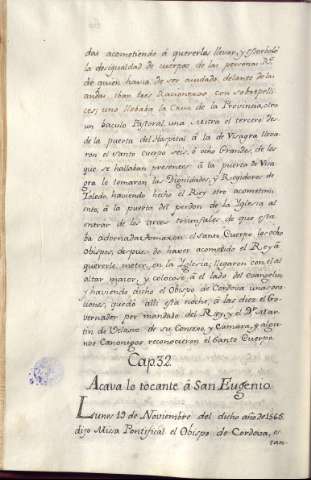 das acometiendo á quererlas llevar, y estorboló
la desigualdad de cuerpos de las personas Rs.
de quien havia de ser ayudado, delante de las
andas iban tres Racioneros con sobrepelli-
ces; uno llebaba la Cruz de la Provincia, otro
un baculo Pastoral, una Mitra el tercero des-
de la puerta del Hospital á la de Visagra lleva-
ron el santo cuerpo seis, ú ocho Grandes, de los
que se hallaban presentes: á la puerta de Visa-
gra lo tomaron las Dignidades, y Regidores de
Toledo, haviendo hecho el Rey otro acometimi-
ento, á la puerta del perdon de la Yglesia al
entrar de los arcos triunfales, de que esta-
ba adornada, tomaron el santo Cuerpo los ocho
obispos, despues de haver acometido el Rey á
quererle meter, en la Yglesia, llegaron con él al
altar maior, y colocose á el lado del evangelio,
y haviendo dicho el Obispo de Cordova unas ora-
ciones, quedó alli esta noche, á las diez el Go-
vernador por mandado del Rey, y el Dr. Mar-
tin de Velasco de su Consejo, y Camara, y algu-
nos Canonigos reconocieron el Santo Cuerpo.
Cap. 32.
Acava lo tocante á San Eugenio.
Lunes 19 de Noviembre del dicho año de 1565.
dijo Misa Pontifical el Obispo de Cordova, es-
tan-